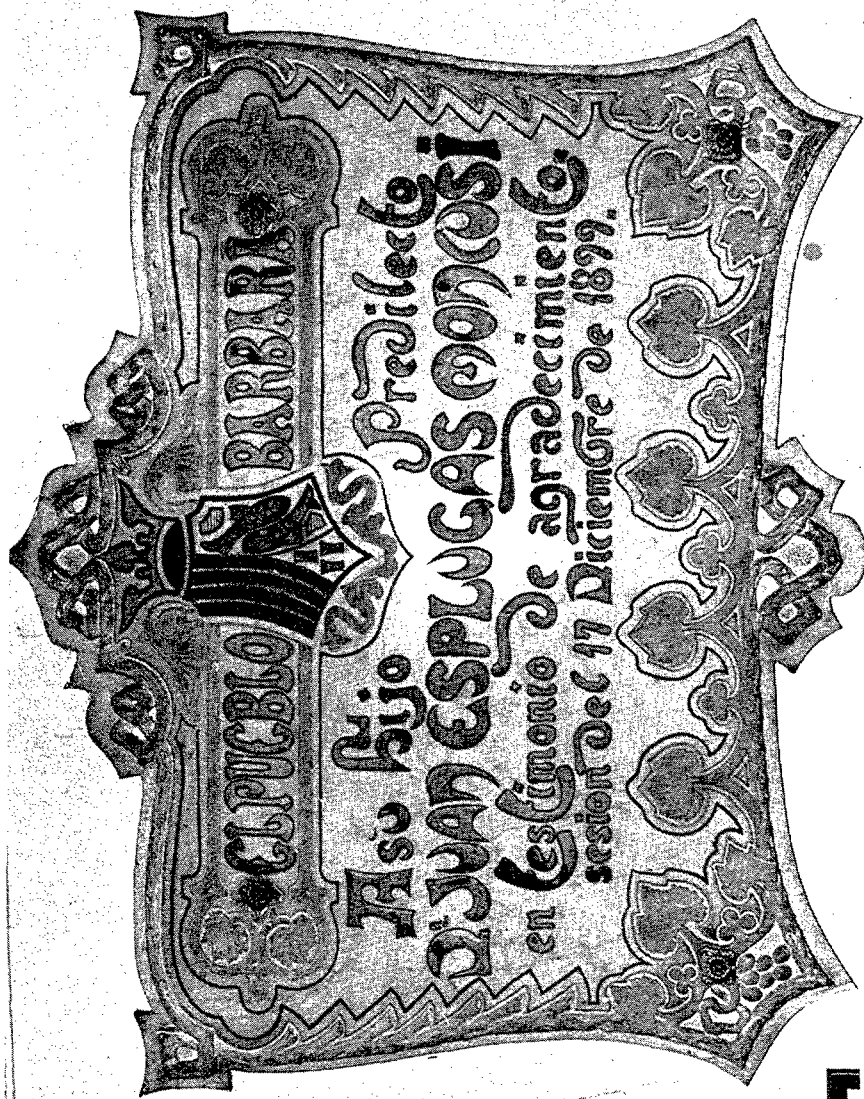 EL PUEBLO BARBARA
A su hijo Predilecto
D. JUAN ESPLUGAS MONCUSI
en testimonio de agradecimiento.
sesion del 17 Diciembre de 1899.